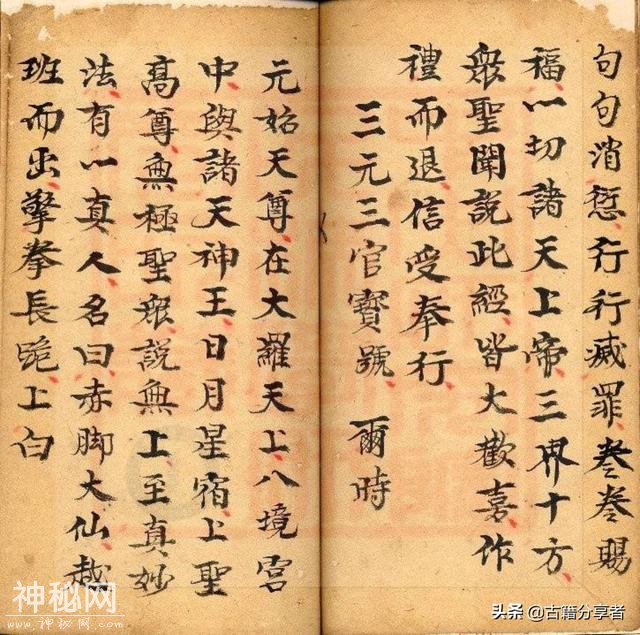 句句消愆行行滅罪卷卷賜
福一切諸天上帝三界十方
衆聖聞説此經皆大歡喜作
禮而退信受奉行
三元三官寳號 爾時
元始天尊在大羅天上八境宫
中與諸天神王日月星宿上聖
高尊無極聖衆説無上至真妙
法有一真人名曰赤脚大仙越
班而出擎拳長跪上白
神秘网
www.神秘网.COM
头条 @古籍分享者